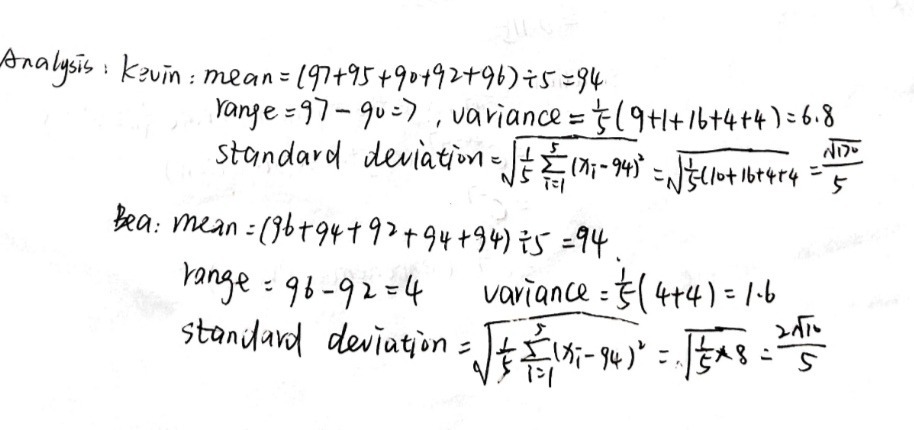 Analysis: Kevin: mean = (97+95+90+92+96)÷5=94
range = 97-90=7, variance = 1/5(9+1+16+4+4)=6.8
standard deviation = √(1/5 ∑_{i=1}^{5}(xi-94)²) = √(1/5(10+16+4+4) = √170/5
Bea: mean = (96+94+92+94+94)÷5=94.
range = 96-92=4 variance = 1/5(4+4)=1.6
standard deviation = √(1/5 ∑_{i=1}^{5}(xi-94)²) = √(1/5*8) = 2√10/5